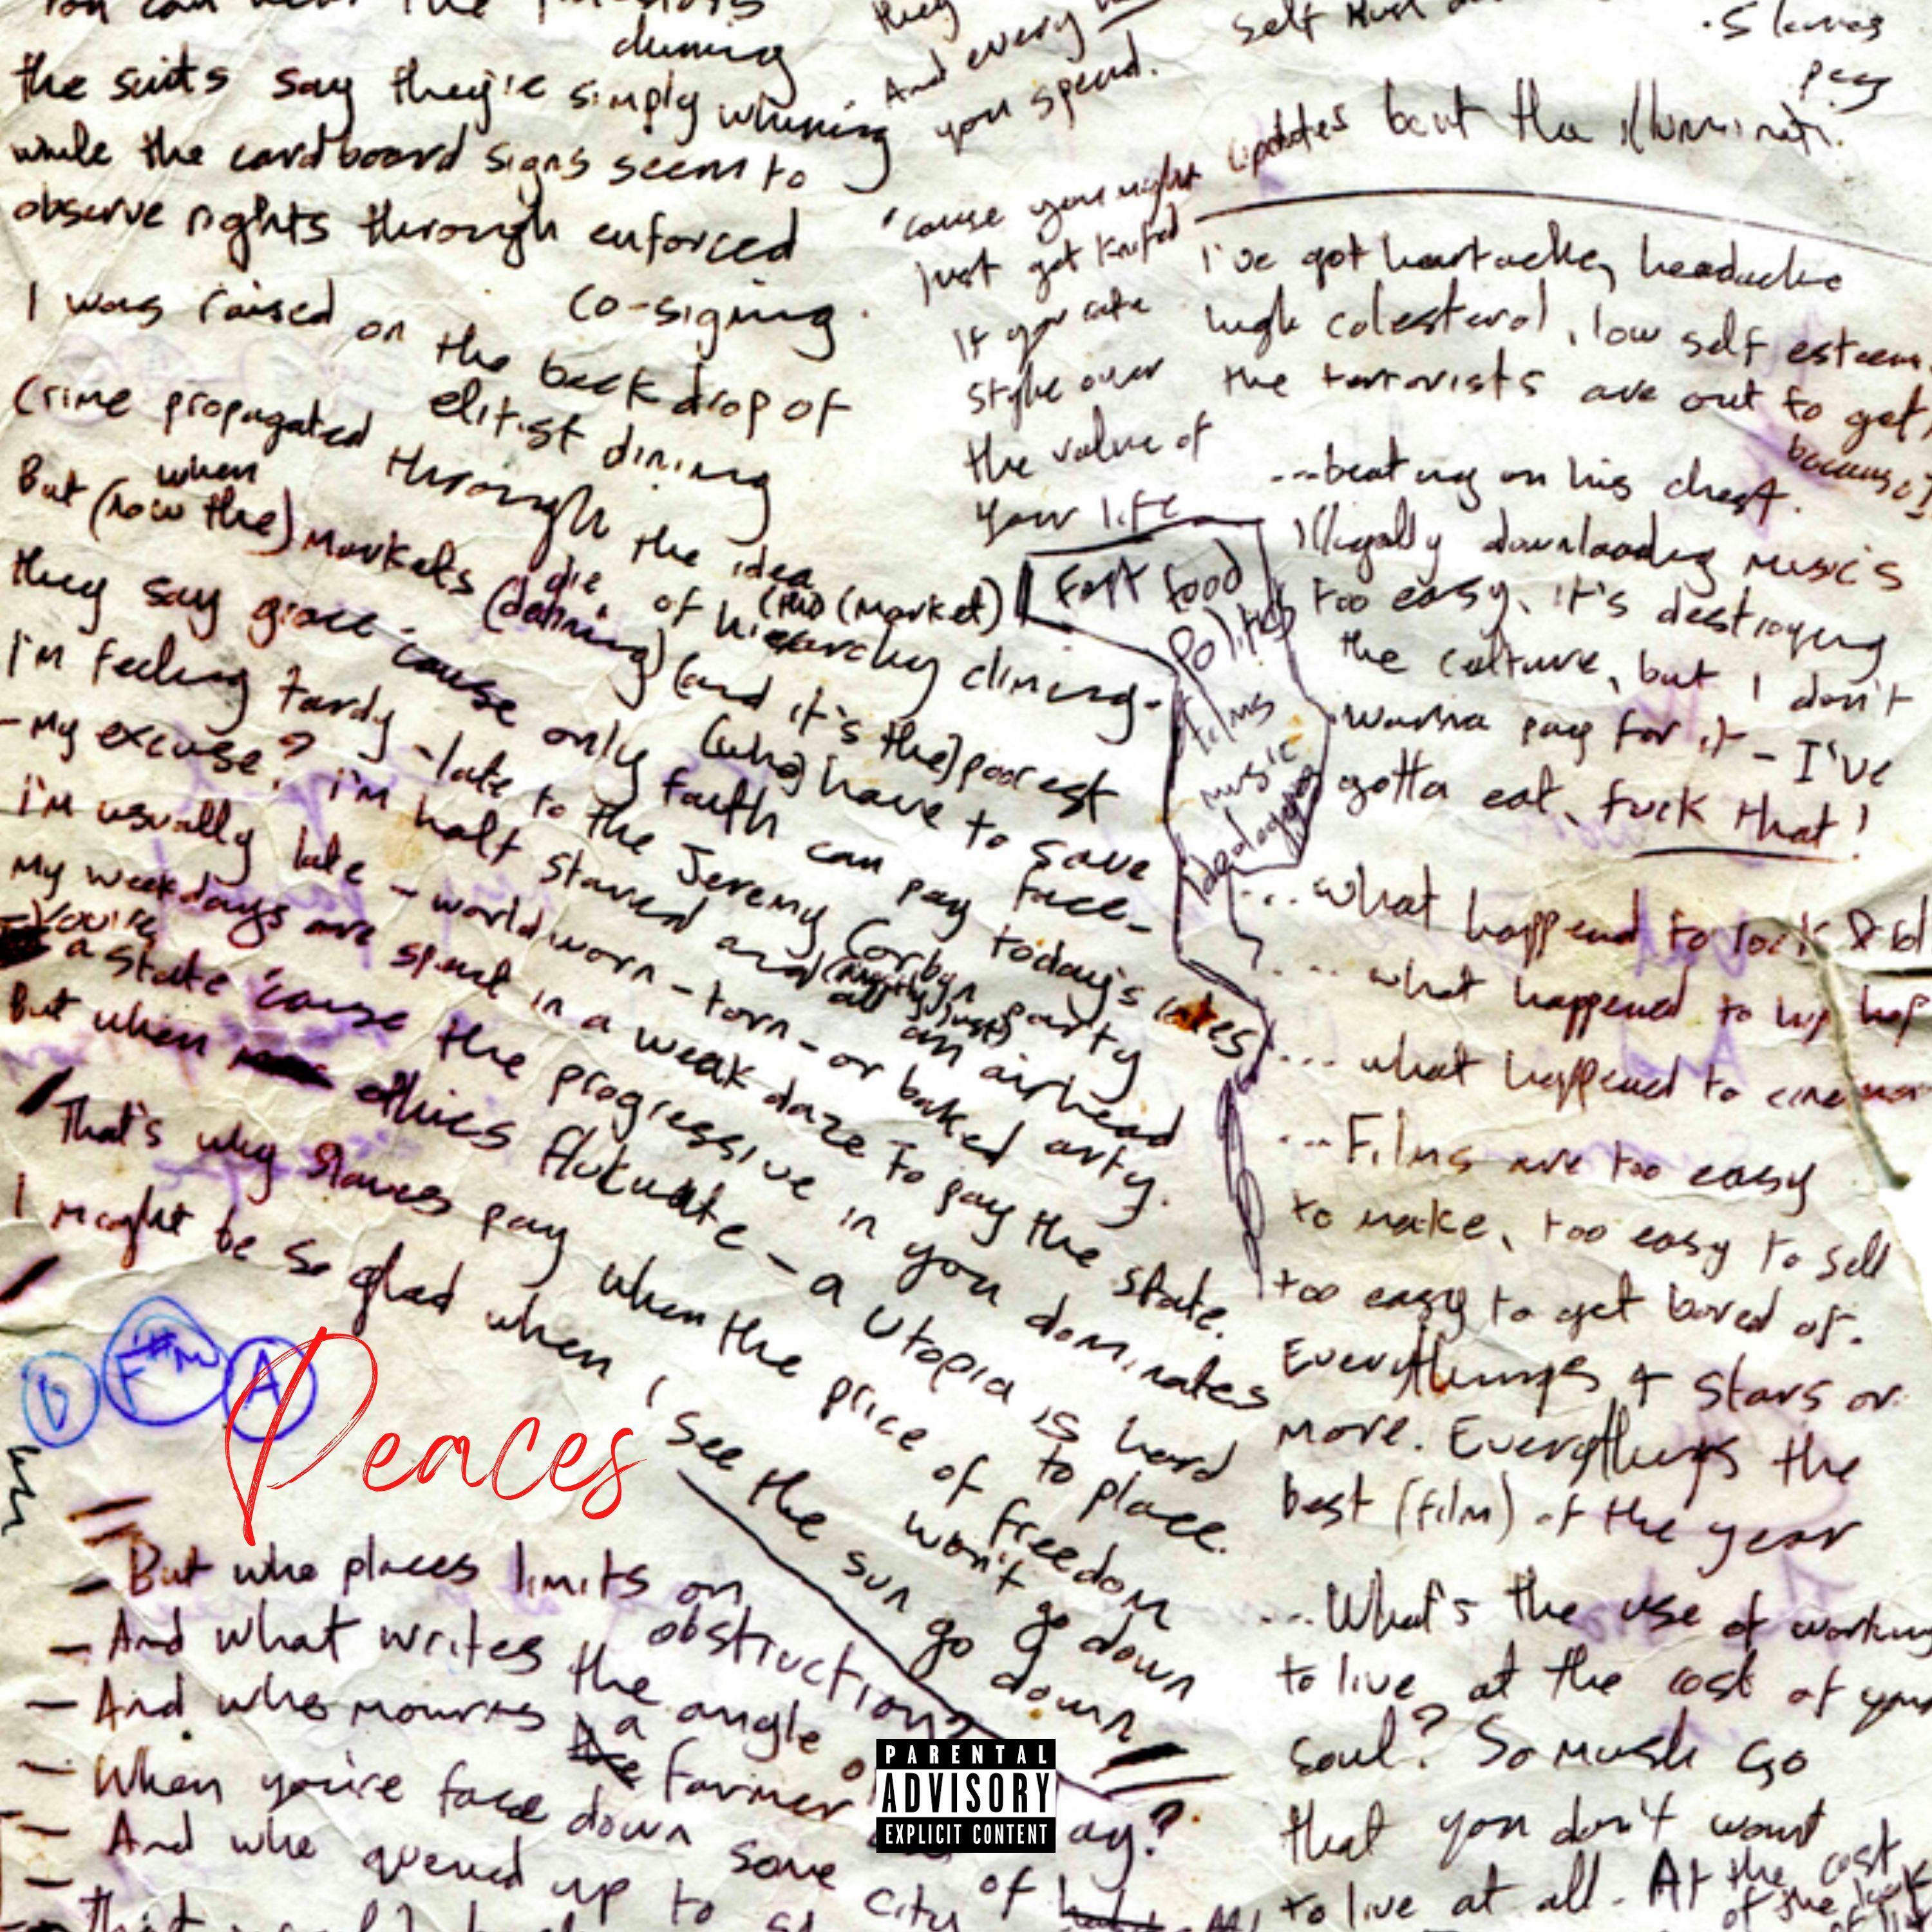 You can hear the
chiming
the suits say they're simply whining
while the cardboard signs seem to
observe rights through enforced
co-signing.
I was raised on the back drop of
elitist dining
Crime propagated through the idea
of hierarchy climing.
But when (now the) markets die (dining) (and it's the) poorest
(who) have to save
face-
they say grace 'cause only faith can pay today's rates
I'm feeling tardy - late to the Jeremy Corbyn party
- My excuse? I'm half starved and all an airhead
I'm usually late - world worn - torn - or baked arty.
My weekdays are spent in a weak daze to pay the state.
You're a state 'cause the progressive in you dominates
But when ethics flukuate - a Utopia is hard
to place.
That's why slaves pay when the price of freedom
won't go down
I might be so glad when I see the sun go down
D F#m A
Peaces
- But who places limits on
obstruction?
- And what writes the angle
- And who mourns a farmer
- When you're face down some
- And who queued up to
city of
ay?
they
And every
you spend.
'cause you might
just get knifed
If you rate
style over
the value of
your life
(market)
Fast food
Politics
films
music
ideologys
self
slaves
pay
updates bout the illuminati.
I've got heartache, headache
high colesterol, low self esteem.
the terrorists are out to get
because of
...beating on his chest.
Illegally downloading music's
too easy, it's destroying
the culture, but I don't
wanna pay for it - I've
gotta eat, fuck that!
... what happend to rock &
... what happened to hip hop
... what happened to cinema
... Films are too easy
to make, too easy to sell
too easy to get bored of.
Everythings 4 stars or
more. Everythings the
best (film) of the year
... What's the use of working
to live at the cost of your
soul? So much so
that you don't want
to live at all. At the cost
of the
PARENTAL
ADVISORY
EXPLICIT CONTENT